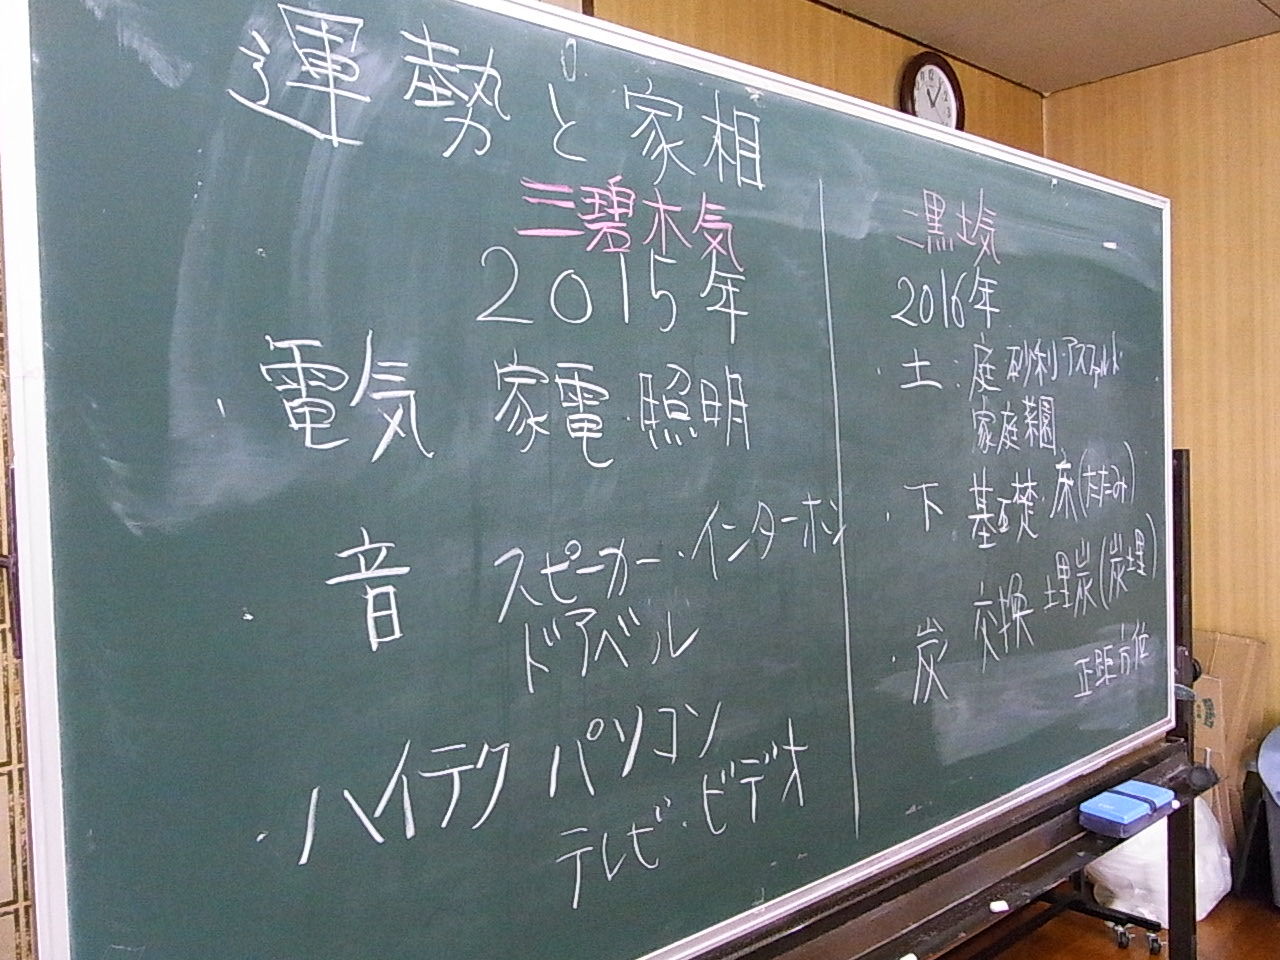 運勢と家相
三碧木気
2015年
・電気 家電・照明
・音 スピーカー・インターホン
ドアベル
・ハイテク パソコン
テレビ・ビデオ
二黒土気
2016年
・土:庭 砂利・アスファルト
家庭菜園
・下 基礎・床(たたみ)
・炭 交換 埋炭(炭埋)
正距方位